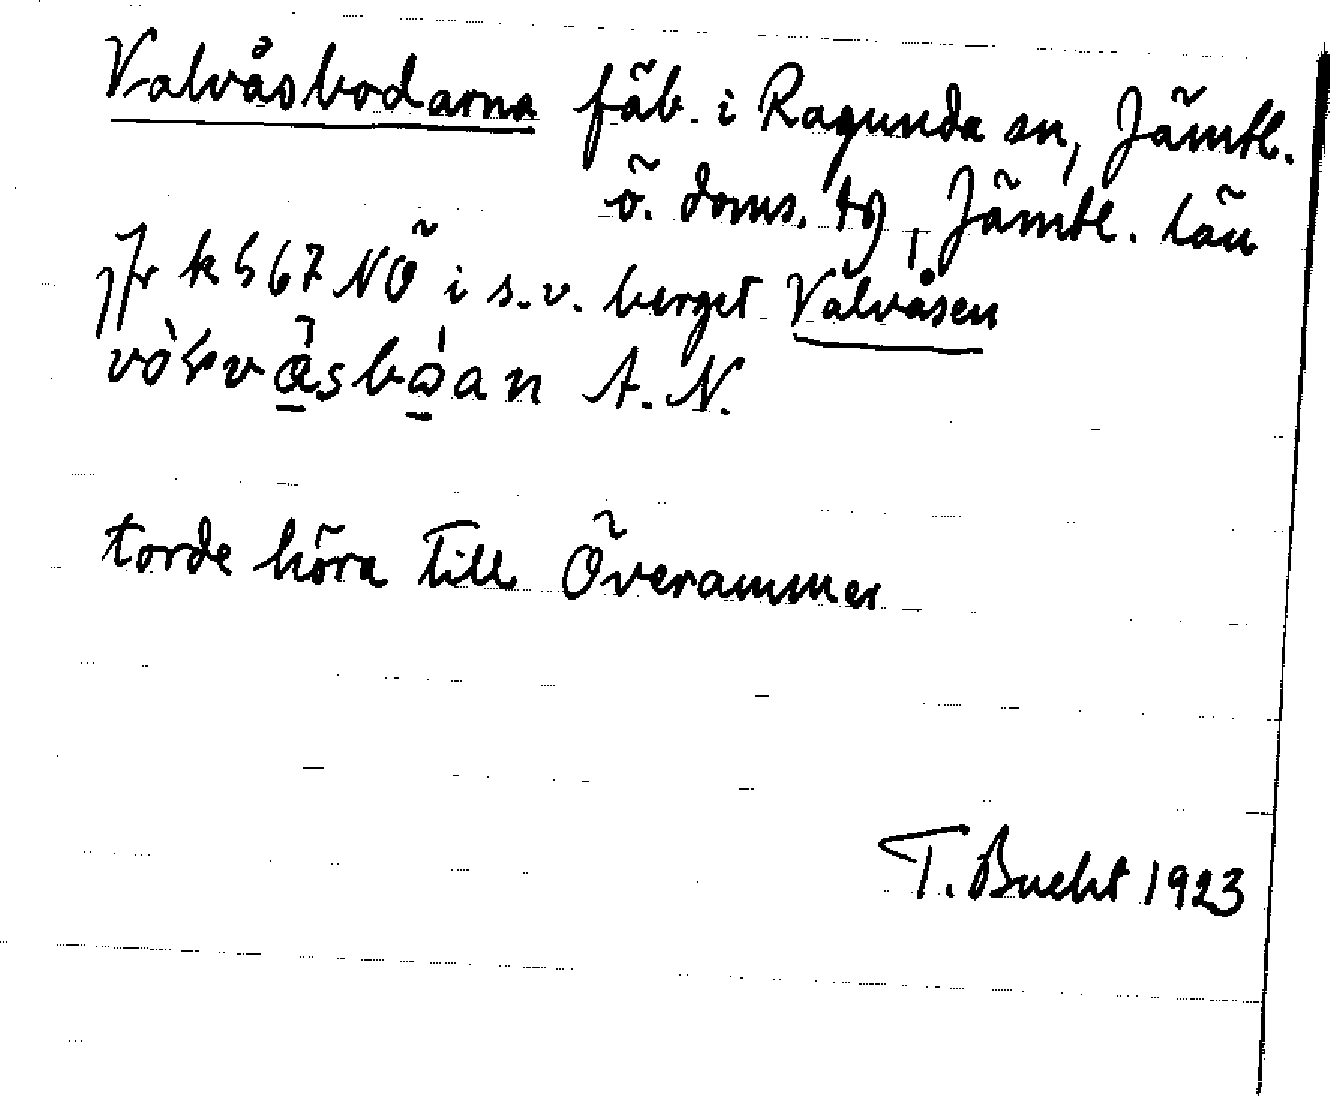 Valvåsbodarna fäb. i Ragunda sn, Jämtl.
ö. doms. tg, Jämtl. län
Jfr k 567 NÖ i s.v. berget Valvåsen
A. N.
torde höra till Överammer
T. Bucht 1923